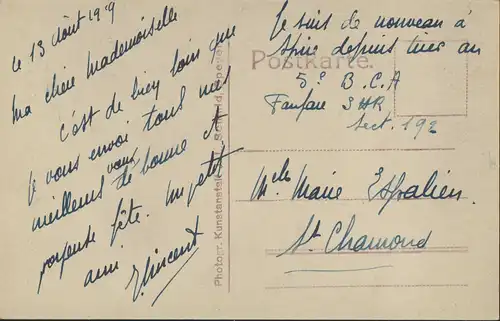 le 13 Août 1919
Ma chère Mademoiselle
c'est de bien loin que
Je vous envoi tous mes
meilleurs vœux de bonne et
joyeuse fête. Un petit
ami
Vincent
Photogr. Kunstanstalt Speyer
Postkarte.
Je suis de nouveau à
Spire depuis hier au
5e B.C.A
Fanfare SHR
Sect. 192
Melle Marie Espalien
St Chamond